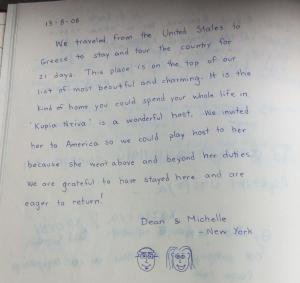 13-8-08
We traveled from the United States to
Greece to stay and tour the country for
21 days. This place is on the top of our
list of most beautiful and charming. It is the
kind of home you could spend your whole life in.
'Kupia Nitva' is a wonderful host. We invited
her to America so we could play host to her
because she went above and beyond her duties.
We are grateful to have stayed here and are
eager to return!
Dean & Michelle
- New York